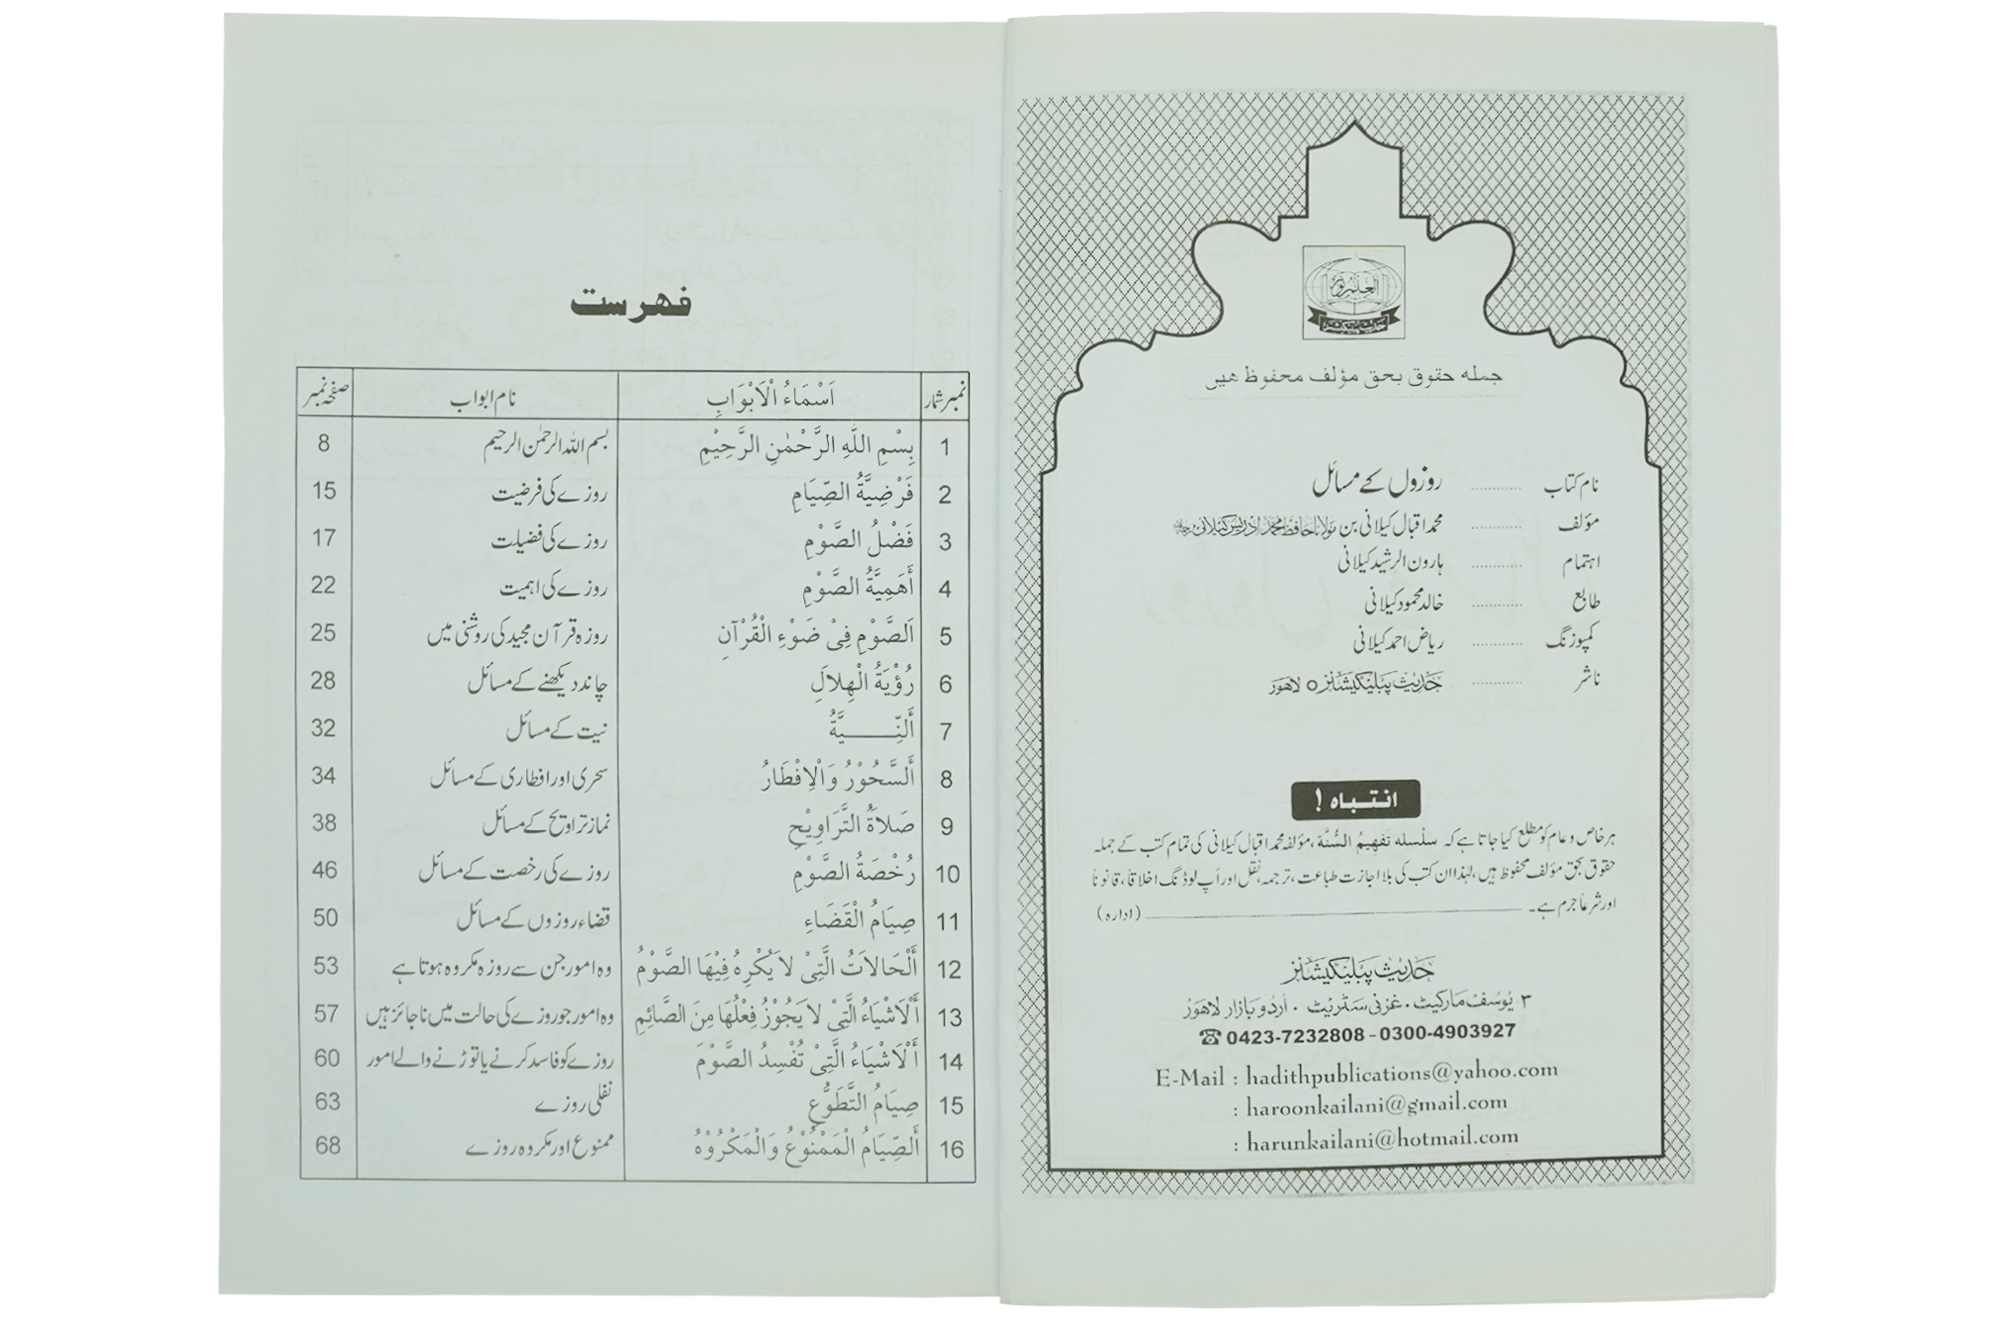 جمله حقوق بحق مؤلف محفوظ هیں
نام کتاب ............ روزوں کے مسائل
مؤلف ............ محمد اقبال کیلانی بن مولانا حافظ محمد ادریس کیلانی
اہتمام ............ ہارون الرشید کیلانی
طابع ............ خالد محمود کیلانی
کمپوزنگ ............ ریاض احمد کیلانی
ناشر ............ حدیث پبلیکیشنز ○ لاہور
انتباہ !
ہر خاص و عام کو مطلع کیا جاتا ہے کہ سلسلہ تفهیم السُّنَّة، مؤلفہ محمد اقبال کیلانی کی تمام کتب کے جملہ
حقوق بحق مؤلف محفوظ ہیں، لہٰذا ان کتب کی بلا اجازت طباعت، ترجمہ، نقل اور اَپ لوڈنگ اخلاقاً، قانوناً
اور شرعاً جرم ہے۔ (ادارہ)
حدیث پبلیکیشنز
۳- یوسف مارکیٹ ۰ غزنی سٹریٹ ۰ اُردو بازار لاہور
☎ 0423-7232808 - 0300-4903927
E-Mail : hadithpublications@yahoo.com
: haroonkailani@gmail.com
: harunkailani@hotmail.com
فہرست
نمبر شمار اَسْمَاءُ الْاَبْوَابِ نام ابواب صفحہ نمبر
1 بِسْمِ اللّٰهِ الرَّحْمٰنِ الرَّحِيْمِ بسم اللہ الرحمٰن الرحیم 8
2 فَرْضِيَّةُ الصِّيَامِ روزے کی فرضیت 15
3 فَضْلُ الصَّوْمِ روزے کی فضیلت 17
4 أَهَمِيَّةُ الصَّوْمِ روزے کی اہمیت 22
5 اَلصَّوْمِ فِىْ ضَوْءِ الْقُرْآنِ روزہ قرآن مجید کی روشنی میں 25
6 رُؤْيَةُ الْهِلَالِ چاند دیکھنے کے مسائل 28
7 أَلنِّـــــيَّةُ نیت کے مسائل 32
8 أَلسَّحُوْرُ وَالْاِفْطَارُ سحری اور افطاری کے مسائل 34
9 صَلَاةُ التَّرَاوِيْحِ نماز تراویح کے مسائل 38
10 رُخْصَةُ الصَّوْمِ روزے کی رخصت کے مسائل 46
11 صِيَامُ الْقَضَاءِ قضاء روزوں کے مسائل 50
12 أَلْحَالَاتُ الَّتِىْ لَا يُكْرِهُ فِيْهَا الصَّوْمُ وہ امور جن سے روزہ مکروہ ہوتا ہے 53
13 أَلْاَشْيَاءُ الَّتِىْ لَا يَجُوْزُ فِعْلُهَا مِنَ الصَّائِمِ وہ امور جو روزے کی حالت میں ناجائز ہیں 57
14 أَلْاَشْيَاءُ الَّتِىْ تُفْسِدُ الصَّوْمَ روزے کو فاسد کرنے یا توڑنے والے امور 60
15 صِيَامُ التَّطَوُّعِ نفلی روزے 63
16 أَلصِّيَامُ الْمَمْنُوْعُ وَالْمَكْرُوْهُ ممنوع اور مکروہ روزے 68